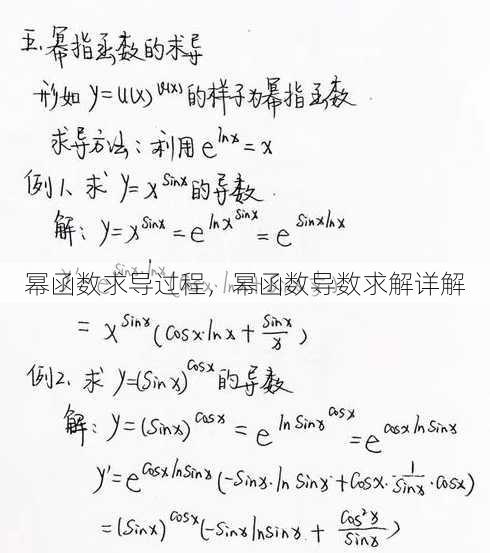 五、幂指函数的求导
形如 y=u(x)^v(x) 的样子为幂指函数.
求导方法：利用 e^lnx = x
例1、求 y=x^sinx 的导数.
解：y=x^sinx = e^lnx^sinx = e^sinxlnx
幂函数求导过程，幂函数导数求解详解
= x^sinx (cosx·lnx + sinx/x)
例2、求 y=(sinx)^cosx 的导数
解：y=(sinx)^cosx = e^lnsinx^cosx = e^cosxlnsinx
y'=e^cosxlnsinx (-sinx·lnsinx + cosx·1/sinx·cosx)
=(sinx)^cosx (-sinxlnsinx + cos²x/sinx)